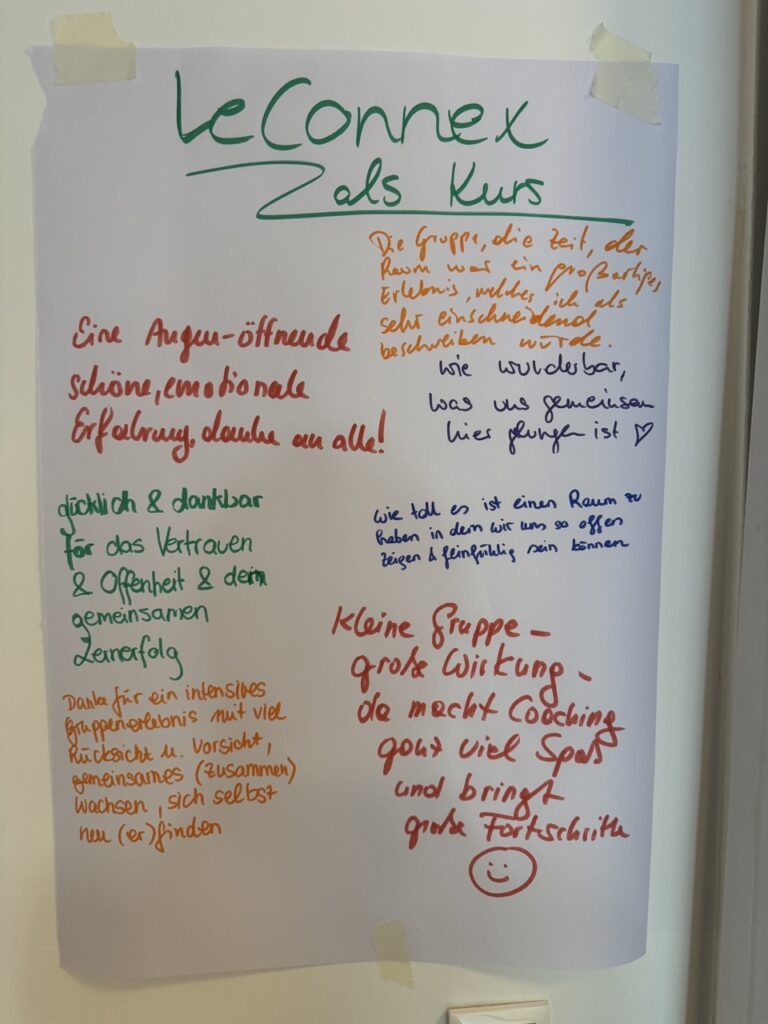 LeConnex
als Kurs
Die Gruppe, die Zeit, der
Raum war ein großartiges
Erlebnis, welches ich als
sehr einschneidend
beschreiben würde.
Eine Augen-öffnende
schöne, emotionale
Erfahrung, danke an alle!
wie wunderbar,
was uns gemeinsam
hier gelungen ist ♡
glücklich & dankbar
für das Vertrauen
& Offenheit & dem
gemeinsamen
Lernerfolg
wie toll es ist einen Raum zu
haben in dem wir uns so offen
zeigen & feinfühlig sein können
Danke für ein intensives
Gruppenerlebnis mit viel
Rücksicht u. Vorsicht,
gemeinsames (zusammen)
wachsen, sich selbst
neu (er)finden
Kleine Gruppe –
große Wirkung –
da macht Coaching
ganz viel Spaß
und bringt
große Fortschritte